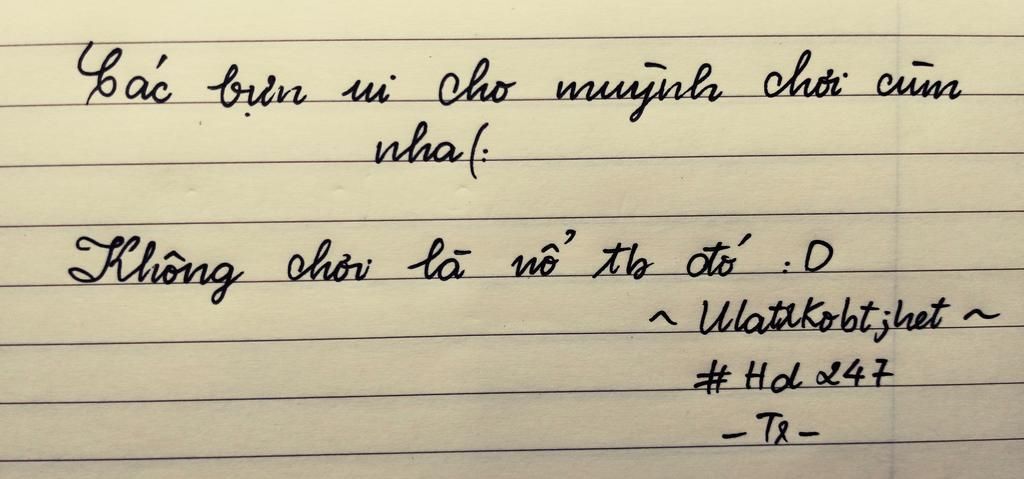 Các bựn ui cho muỳnh chơi cùm
nha(:
Không chơi là nổ tb đó :D
~ UlatrKobtjhet ~
# Hd 247
- Tr -